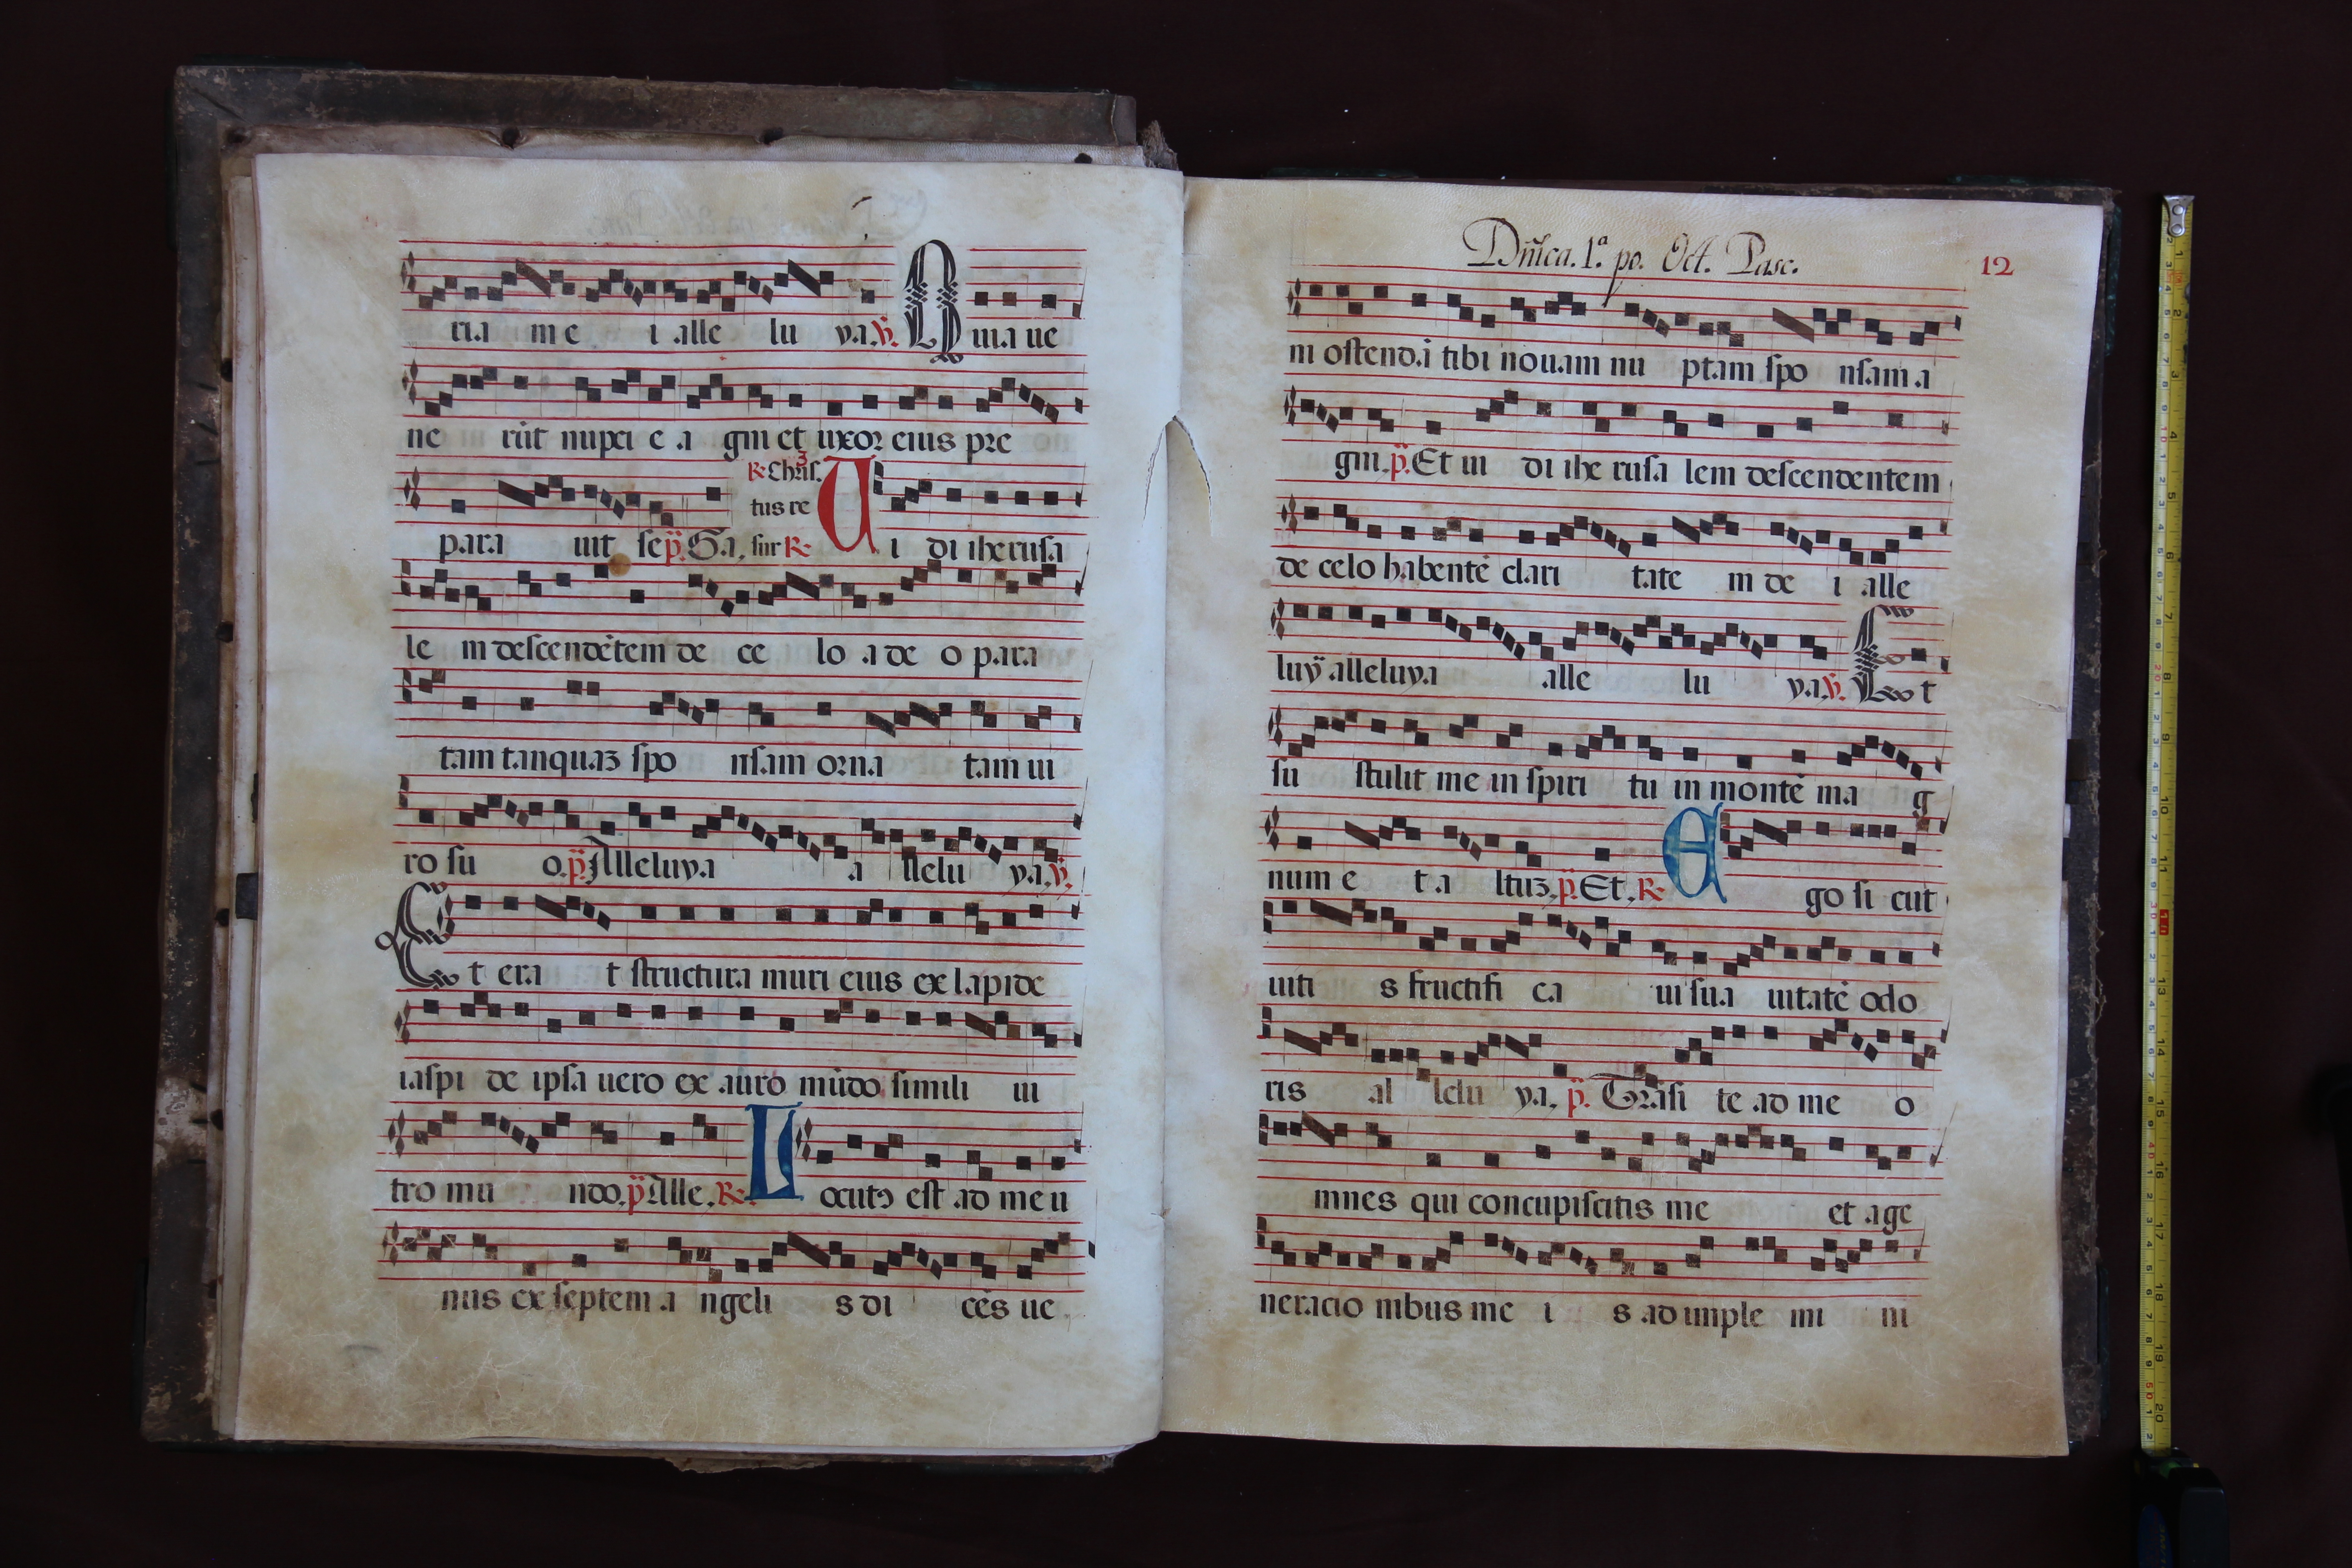 ria me i alle lu ya. ℣. Quia ue
ne rūt nupci e a gni et uxoꝛ eius pꝛe
℟. Chris.
tus re
para uit se p̃. Ga, sur ℟. Ui di iherusa
le m descendētem de ce lo a de o para
tam tanquaꝫ spo nsam oꝛna tam ui
ro su o. p̃. Alleluya a llelu ya. ℣.
Et era t structura muri eius ex lapide
iaspi de ipsa uero ex auro mūdo simili ui
tro mu ndo. p̃ Alle. ℟. Locutꝰ est ad me u
nus ex septem a ngeli s di cēs ue
Dñica. 1ª. po. Oct. Pasc.
12
ni ostendā tibi nouam nu ptam spo nsam a
gni. p̃. Et ui di ihe rusa lem descendentem
de celo habentē clari tate m de i alle
luyȧ alleluya alle lu ya. ℣. Et
su stulit me in spiri tu in montē ma g
num e t a ltuꝫ. p̃. Et. ℟. Ego si cut
uiti s fructifi ca ui sua uitatē odo
ris al lelu ya. p̃. Trāsi te ad me o
mnes qui concupiscitis me et a ge
neracio nibus me i s ad imple mi ni